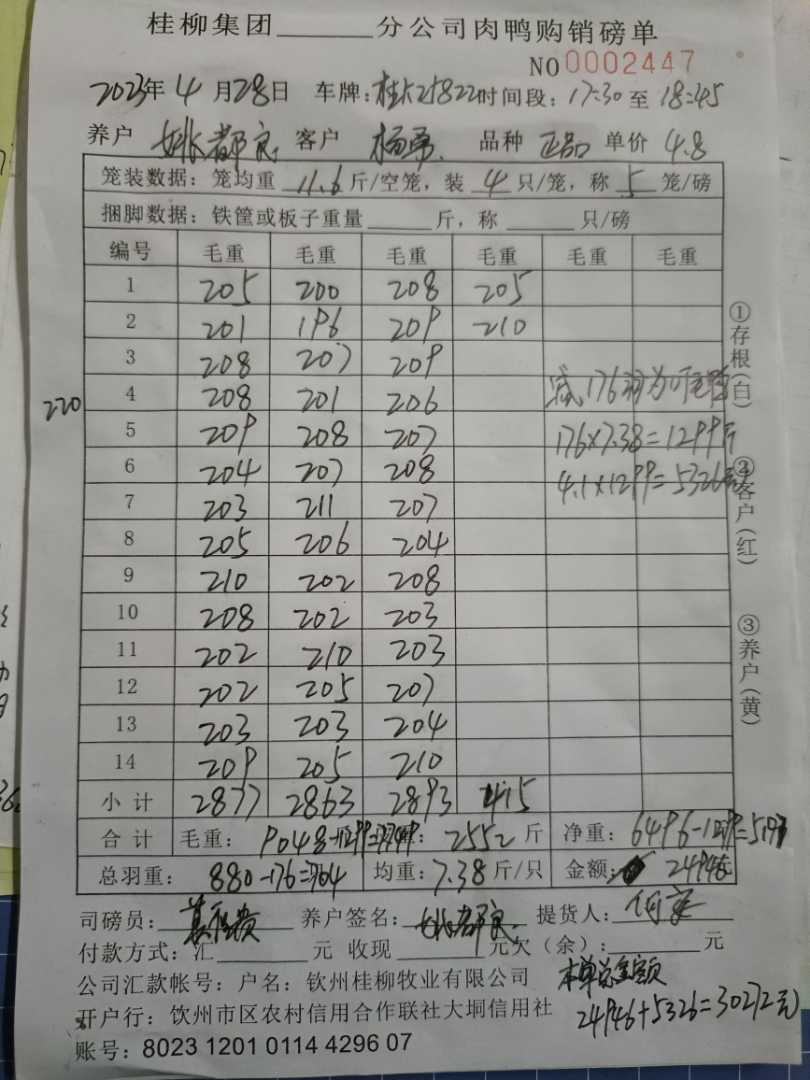 桂柳集团______分公司肉鸭购销磅单
NO 0002447
2023年 4 月28日 车牌:桂A25822时间段:17:30 至 18:45
养户 姚都良 客户 杨勇 品种 正品 单价 4.8
笼装数据:笼均重 11.6 斤/空笼,装 4 只/笼,称 5 笼/磅
捆脚数据:铁筐或板子重量______斤,称______只/磅
编号 毛重 毛重 毛重 毛重 毛重 毛重
1 205 200 208 205
2 201 196 209 210
3 208 207 209
220 4 208 201 206 176 为
5 209 208 207 176×7.38=1299斤
6 204 207 208 4.1×1299=5326元
7 203 211 207
8 205 206 204
9 210 202 208
10 208 202 203
11 202 210 203
12 202 205 207
13 203 203 204
14 209 205 210
小计 2877 2863 2893 415
合计 毛重: 9048-1299=7749 : 2552 斤 净重: 6496-1299=5197
总羽重: 880-176=704 均重: 7.38 斤/只 金额: 24946元
司磅员: 养户签名: 姚都良 提货人: 何
付款方式:汇______元 收现______元欠(余):______元
公司汇款帐号:户名:钦州桂柳牧业有限公司 本单总金额
开户行:饮州市区农村信用合作联社大垌信用社 24946+5326=30272元
账号:8023 1201 0114 4296 07
①存根(白)
②客户(红)
③养户(黄)